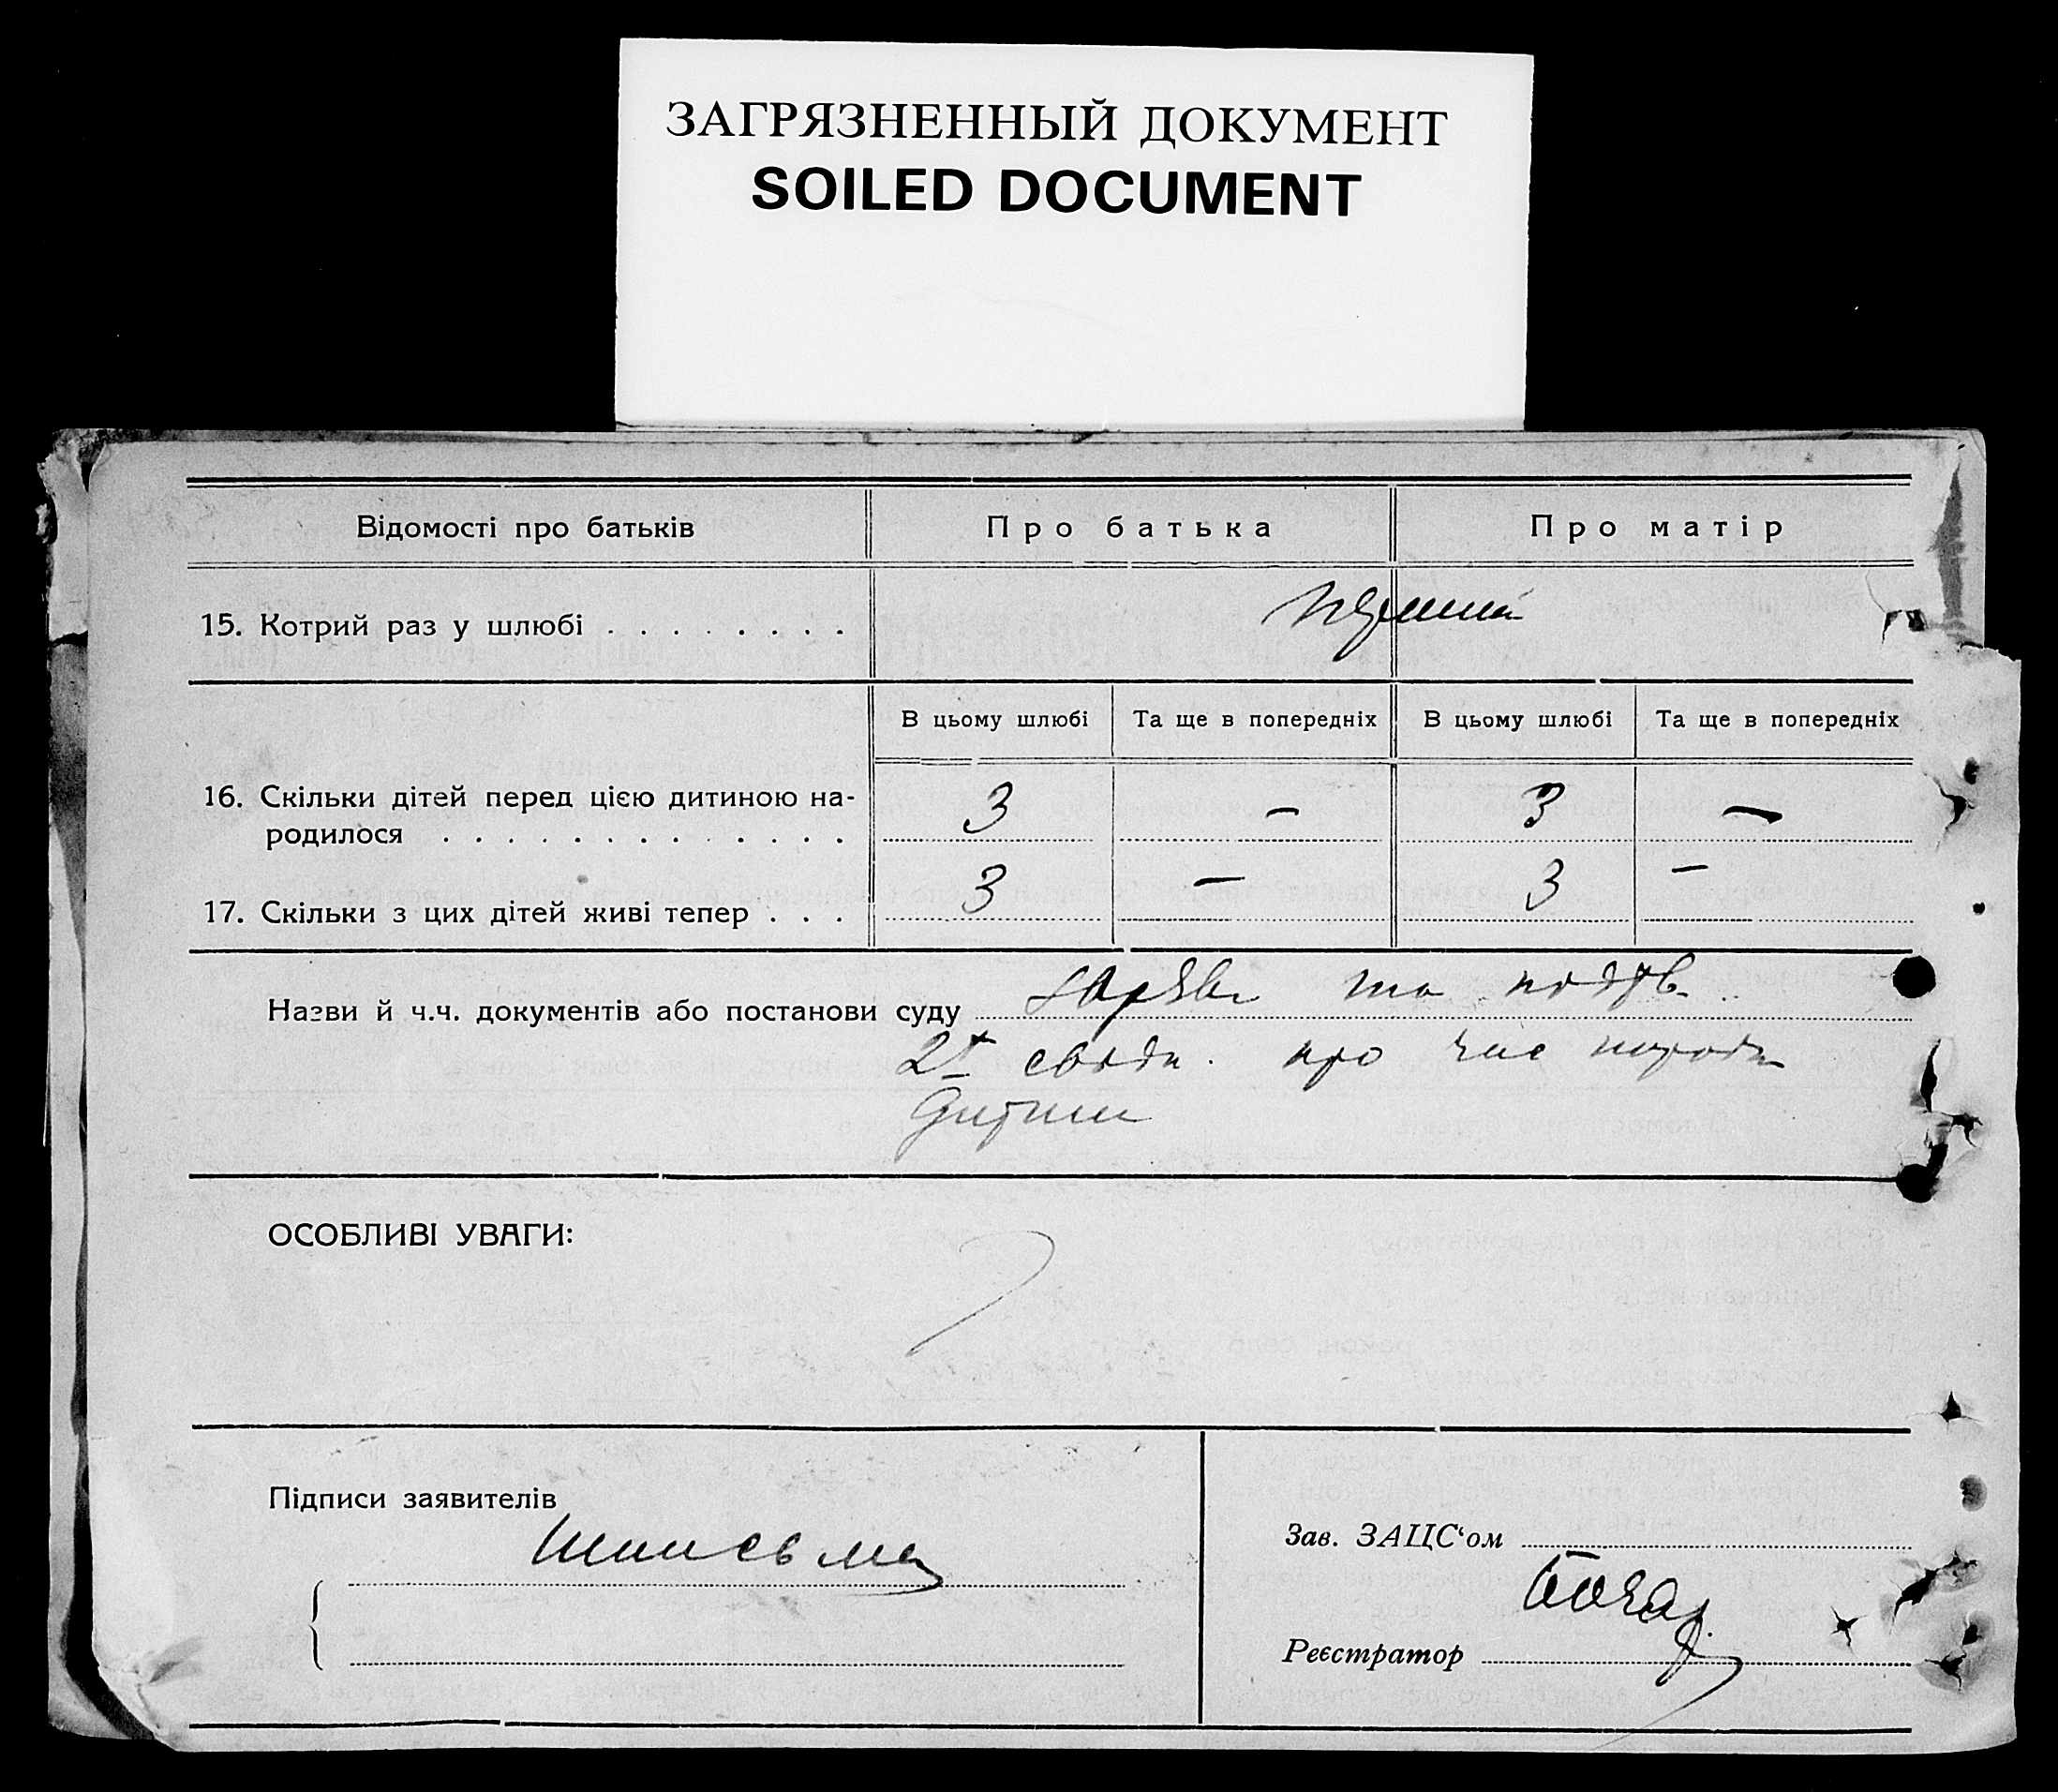 ЗАГРЯЗНЕННЫЙ ДОКУМЕНТ
SOILED DOCUMENT
Відомості про батьків Про батька Про матір
15. Котрий раз у шлюбі . . . . . . . .
В цьому шлюбі Та ще в попередніх В цьому шлюбі Та ще в попередніх
16. Скільки дітей перед цією дитиною на-
родилося . . . . . . . . . . . . . 3 — 3 —
17. Скільки з цих дітей живі тепер . . . 3 — 3 —
Назви й ч.ч. документів або постанови суду та
про час
дитини
ОСОБЛИВІ УВАГИ:
Підписи заявителів
Зав. ЗАЦС‘ом
Реєстратор